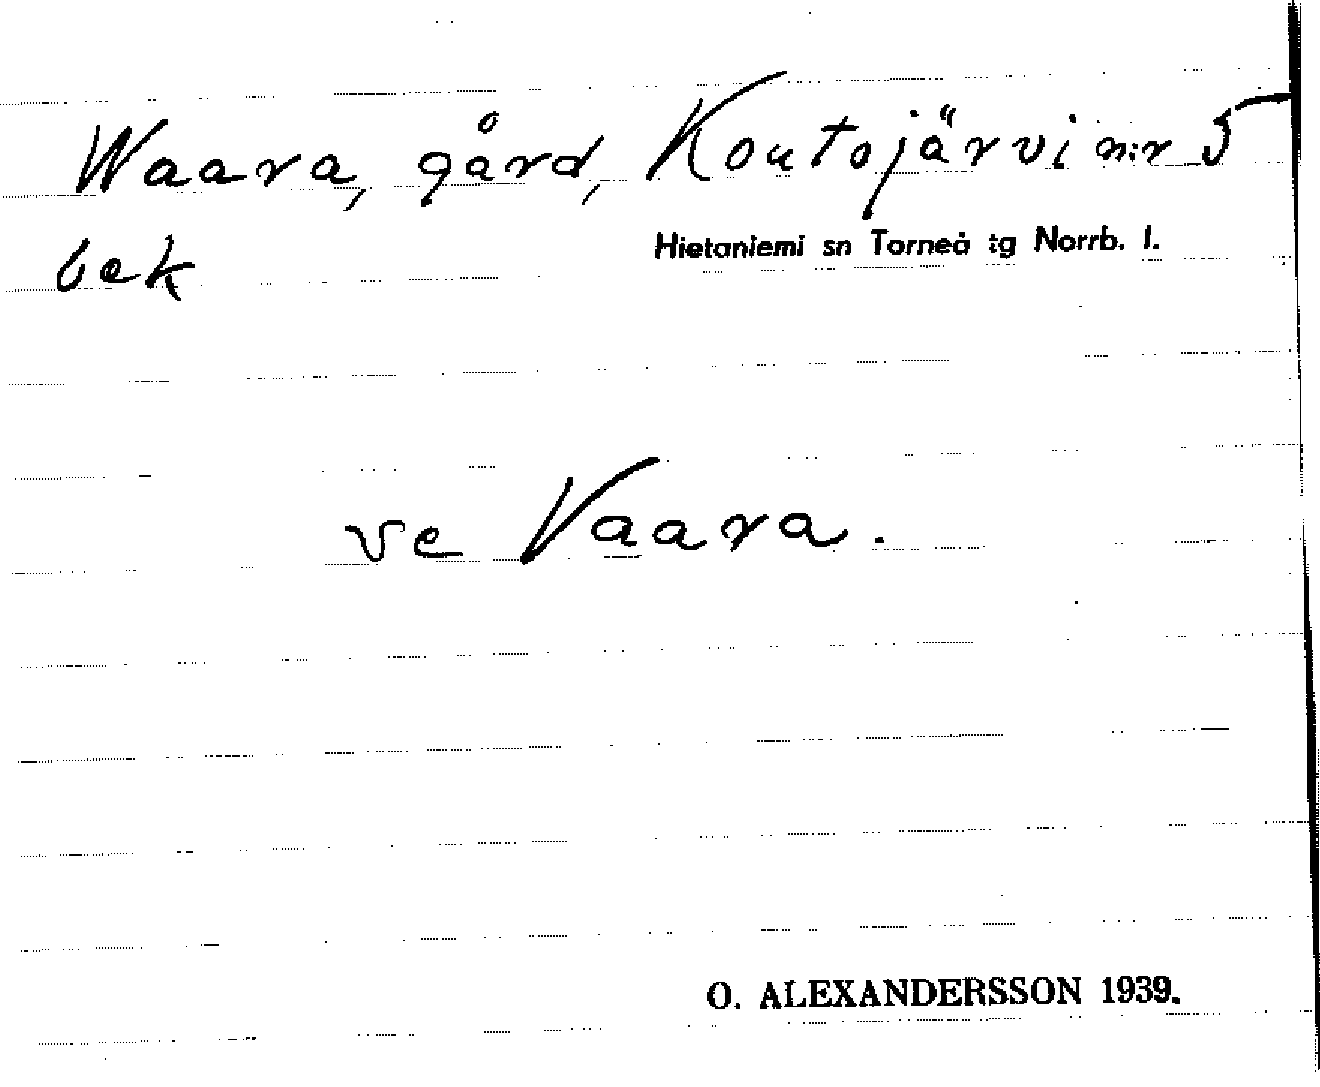 Waara, gård, Koutojärvi n:r 5
bek
Hietaniemi sn Torneå tg Norrb. l.
se Vaara.
O. ALEXANDERSSON 1939.